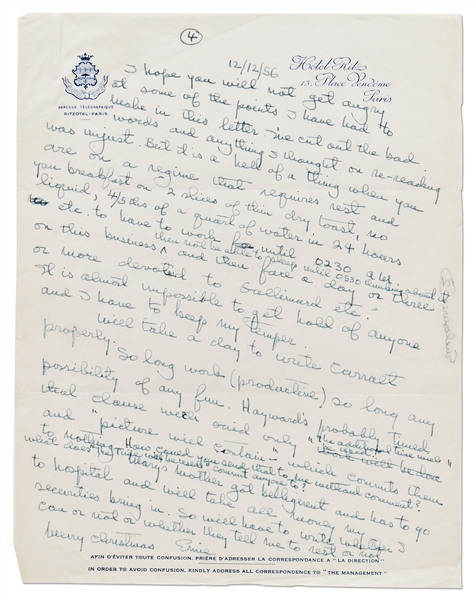 4
12/12/56
Hôtel Ritz
15, Place Vendôme
Paris
ADRESSE TÉLÉGRAPHIQUE
RITZOTEL-PARIS
I hope you will not get angry
at some of the points I have had to
make in this letter I've cut out the bad
words and anything I thought on re-reading
was unjust. But it is a hell of a thing when you
are on a regime that requires rest and
you breakfast on 2 slices of thin dry toast, no
liquid, 4/5ths of a quart of water in 24 hours
etc. to have to work until 0230 a.m.
on this business, then not be able to sleep until 0530 thinking about it
and then face a day or three
or more devoted to Gallimard etc.
It is almost impossible to get hold of anyone
and I have to keep my temper.
Will take a day to write
properly. So long work (productive) so long any
possibility of any fun. Hayward's probably timed
that clause well said only
and "picture will contain" - which commits them
to nothing. How could you send that to me without comment?
what does
Mary's mother got belligerent and has to go
to hospital and will take all money my
securities bring in. So will have to write whether I
can or not or whether they tell me to rest or not
Merry Christmas Ernie
AFIN D'ÉVITER TOUTE CONFUSION, PRIÈRE D'ADRESSER LA CORRESPONDANCE A "LA DIRECTION"
IN ORDER TO AVOID CONFUSION, KINDLY ADDRESS ALL CORRESPONDENCE TO "THE MANAGEMENT"